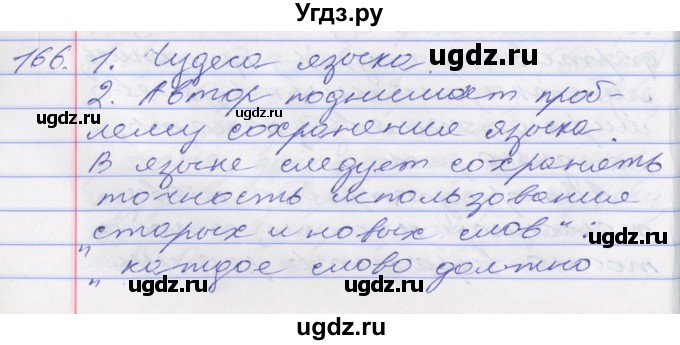 Угдз.ру
166. 1. Чудеса языка.
2. Автор поднимает проб-
лему сохранения языка.
В языке следует сохранять
точность использования
старых и новых слов":
„каждое слово должно
ugdz.ru ugdz.ru
ugdz.ru ugdz.ru
ugdz.ru ugdz.ru
ugdz.ru ugdz.ru
ugdz.ru